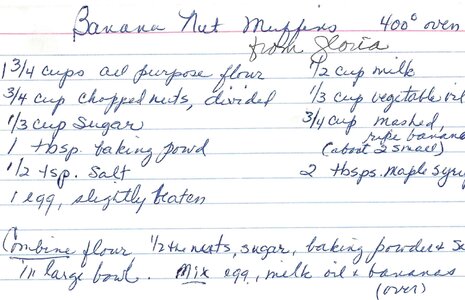 Banana Nut Muffins 400° oven
from Gloria
1 3/4 cups all purpose flour 1/2 cup milk
3/4 cup chopped nuts, divided 1/3 cup vegetable oil
1/3 cup Sugar 3/4 cup mashed
ripe banana
1 tbsp. baking powd (about 2 small)
1/2 tsp. Salt 2 tbsps. maple syr
1 egg, slightly beaten
Combine flour 1/2 the nuts, sugar, baking powder + Sa
in large bowl. Mix egg, milk oil & bananas
(over)